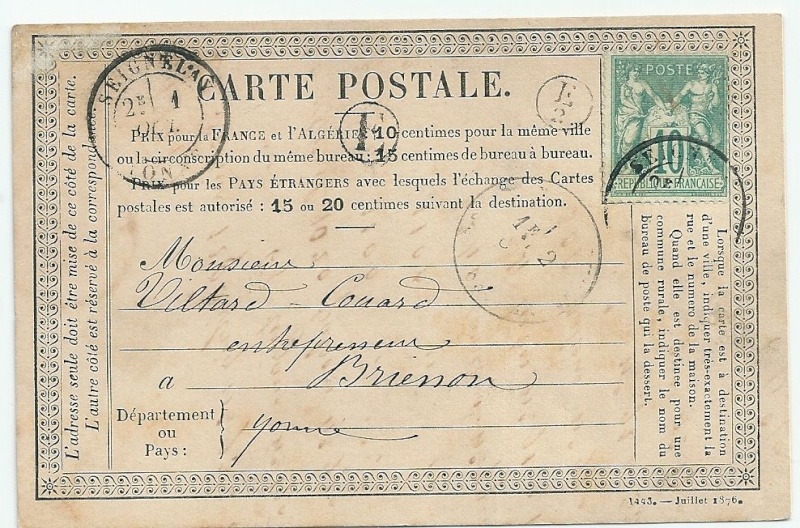 CARTE POSTALE.
PRIX pour la FRANCE et l'ALGÉRIE : 10 centimes pour la même ville
ou la circonscription du même bureau; 15 centimes de bureau à bureau.
PRIX pour les PAYS ÉTRANGERS avec lesquels l'échange des Cartes
postales est autorisé : 15 ou 20 centimes suivant la destination.
Monsieur
Viltard-Couard
entrepreneur
a Brienon
Département
ou
Pays :
yonne
L'adresse seule doit être mise de ce côté de la carte.
L'autre côté est réservé à la correspondance.
Lorsque la carte est à destination
d'une ville, indiquer très-exactement la
rue et le numero de la maison.
Quand elle est destinée pour une
commune rurale, indiquer le nom du
bureau de poste qui la dessert.
POSTE
10
REPUBLIQUE FRANÇAISE
SEIGNELAY
2E 1
1E
2
1493. — Juillet 1876.